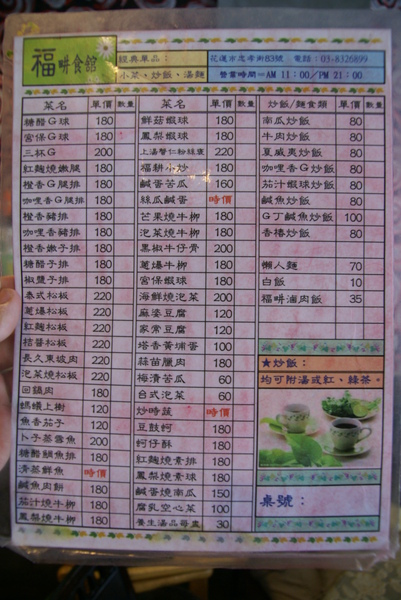 福畊食館
經典單品：
小菜、炒飯、湯麵
花蓮市忠孝街83號 電話：03-8326899
營業時間＝AM 11：00／PM 21：00
菜名 單價 數量
糖醋G球 180
宮保G球 180
三杯G 200
紅麴燒嫩腿 180
橙香G腿排 180
咖哩香G腿排 180
橙香豬排 180
咖哩香豬排 180
橙香嫩子排 180
糖醋子排 180
椒鹽子排 180
泰式松板 220
蔥爆松板 220
紅麴松板 220
桔醬松板 220
長久東坡肉 220
泡菜燒松板 220
回鍋肉 180
螞蟻上樹 120
魚香茄子 120
卜子蒸鱈魚 200
糖醋鯛魚排 180
清蒸鮮魚 時價
鹹魚肉餅 180
茄汁燒牛柳 180
鳳梨燒牛柳 180
菜名 單價 數量
鮮菇蝦球 180
鳳梨蝦球 180
上湯蟹仁粉絲煲 220
福畊小炒 180
鹹蛋苦瓜 160
絲瓜鹹蛋 時價
芒果燒牛柳 180
泡菜燒牛柳 180
黑椒牛仔骨 200
蔥爆牛柳 180
宮保蝦球 180
海鮮燒泡菜 200
麻婆豆腐 120
家常豆腐 120
塔香黃埔蛋 100
蒜苗臘肉 180
梅漬苦瓜 60
台式泡菜 60
炒時蔬 時價
豆鼓蚵 180
蚵仔酥 180
紅麴燒素排 180
鳳梨燒素球 180
鹹蛋燒南瓜 150
腐乳空心菜 100
養生湯品哥盅 30
炒飯/麵食類 單價 數量
南瓜炒飯 80
牛肉炒飯 80
夏威夷炒飯 80
咖哩香G炒飯 80
茄汁蝦球炒飯 80
鹹魚炒飯 80
G丁鹹魚炒飯 100
香椿炒飯 80
懶人麵 70
白飯 10
福畊滷肉飯 35
★炒飯：
均可附湯或紅、綠茶。
桌號：